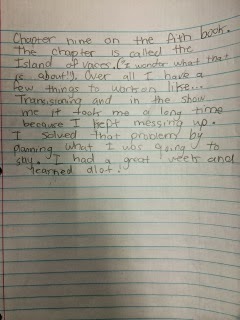 Chapter nine on the Ath book.
The chapter is called the
Island of voices. (I wonder what that
is about!). Over all I have a
few things to work on like...
Transisioning and in the show
me it took me a long time
because I kept messing up.
I solved that problem by
planning what I was going to
say. I had a great week and
learned alot!